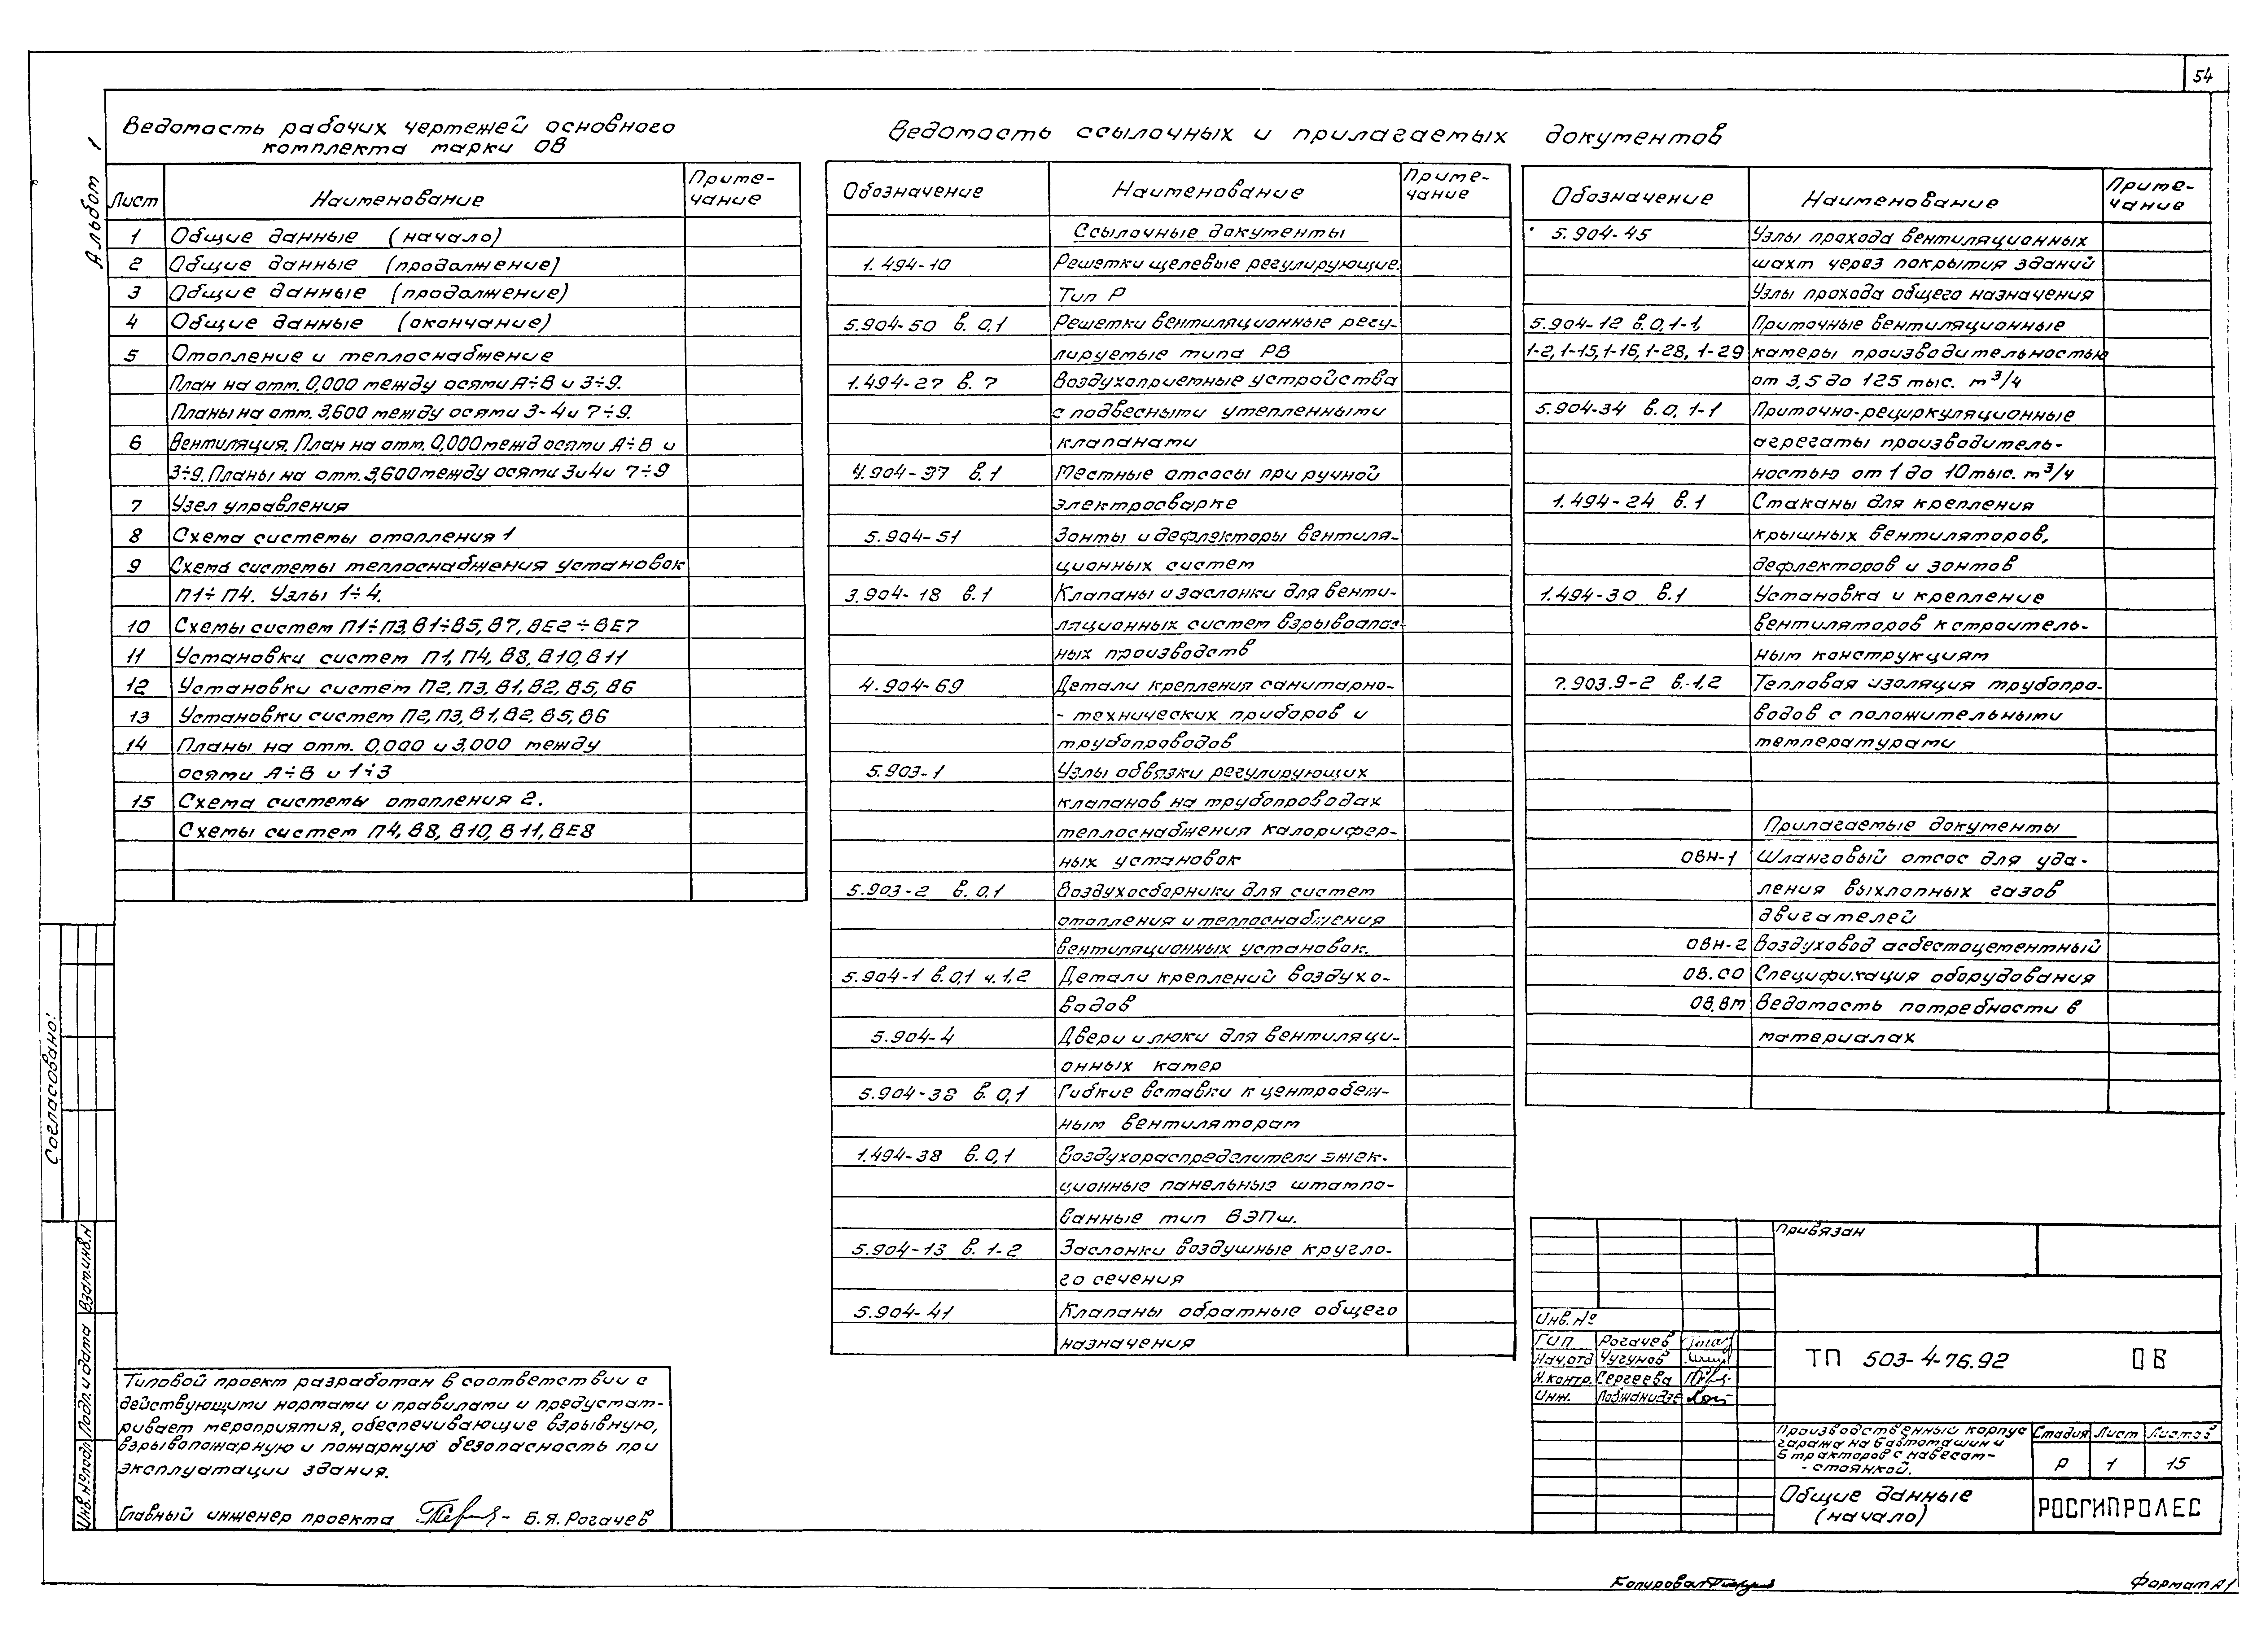 54
Альбом 1
Ведомость рабочих чертежей основного
комплекта марки ОВ
Лист Наименование Приме-
чание
1 Общие данные (начало)
2 Общие данные (продолжение)
3 Общие данные (продолжение)
4 Общие данные (окончание)
5 Отопление и теплоснабжение
План на отм. 0,000 между осями А÷В и 3÷9.
Планы на отм. 3,600 между осями 3-4 и 7÷9.
6 Вентиляция. План на отм. 0,000 межд осями А÷В и
3÷9. Планы на отм. 3,600 между осями 3и4 и 7÷9
7 Узел управления
8 Схема системы отопления 1
9 Схема системы теплоснабжения установок
П1÷П4. Узлы 1÷4.
10 Схемы систем П1÷П3, В1÷В5, В7, ВЕ2÷ВЕ7
11 Установки систем П1, П4, В8, В10, В11
12 Установки систем П2, П3, В1, В2, В5, В6
13 Установки систем П2, П3, В1, В2, В5, В6
14 Планы на отм. 0,000 и 3,000 между
осями А÷В и 1÷3
15 Схема системы отопления 2.
Схемы систем П4, В8, В10, В11, ВЕ8
Ведомость ссылочных и прилагаемых документов
Обозначение Наименование Приме-
чание
Ссылочные документы
1.494-10 Решетки щелевые регулирующие.
Тип Р
5.904-50 в. 0,1 Решетки вентиляционные регу-
лируемые типа РВ
1.494-27 в. 7 Воздухоприемные устройства
с подвесными утепленными
клапанами
4.904-37 в.1 Местные отсосы при ручной
электросварке
5.904-51 Зонты и дефлекторы вентиля-
ционных систем
3.904-18 в.1 Клапаны и заслонки для венти-
ляционных систем взрывоопас-
ных производств
4.904-69 Детали крепления санитарно-
- технических приборов и
трубопроводов
5.903-1 Узлы обвязки регулирующих
клапанов на трубопроводах
теплоснабжения калорифер-
ных установок
5.903-2 в. 0,1 Воздухосборники для систем
отопления и теплоснабжения
вентиляционных установок.
5.904-1 в.0,1 ч.1,2 Детали креплений воздухо-
водов
5.904-4 Двери и люки для вентиляци-
онных камер
5.904-38 в. 0,1 Гибкие вставки к центробеж-
ным вентиляторам
1.494-38 в. 0,1 Воздухораспределители эжек-
ционные панельные штампо-
ванные тип ВЭПш.
5.904-13 в. 1-2 Заслонки воздушные кругло-
го сечения
5.904-41 Клапаны обратные общего
назначения
Обозначение Наименование Приме-
чание
5.904-45 Узлы прохода вентиляционных
шахт через покрытия зданий
Узлы прохода общего назначения
5.904-12 в.0,1-1, Приточные вентиляционные
1-2,1-15,1-16,1-28, 1-29 камеры производительностью
от 3,5 до 125 тыс. м³/ч
5.904-34 в.0, 1-1 Приточно-рециркуляционные
агрегаты производитель-
ностью от 1 до 10 тыс. м³/ч
1.494-24 в.1 Стаканы для крепления
крышных вентиляторов,
дефлекторов и зонтов
1.494-30 в.1 Установка и крепление
вентиляторов к строитель-
ным конструкциям
7.903.9-2 в.-1,2 Тепловая изоляция трубопро-
водов с положительными
температурами
Прилагаемые документы
ОВН-1 Шланговый отсос для уда-
ления выхлопных газов
двигателей
ОВН-2 Воздуховод асбестоцементный
ОВ.СО Спецификация оборудования
ОВ.ВМ Ведомость потребности в
материалах
Согласовано:
Инв.№подл. Подп. и дата Взам.инв.н
Типовой проект разработан в соответствии с
действующими нормами и правилами и предусмат-
ривает мероприятия, обеспечивающие взрывную,
взрывопожарную и пожарную безопасность при
эксплуатации здания.
Главный инженер проекта Б.Я. Рогачев
Привязан
Инв.№
ГИП Рогачев
Нач.отд Чугунов
Н.контр. Сергеева
Инж.
ТП 503-4-76.92 ОВ
Производственный корпус
гаража на 6 автомашин и
6 тракторов с навесом-
- стоянкой.
Стадия Лист Листов
Р 1 15
Общие данные
(начало)
РОСГИПРОЛЕС
Копировал
Формат А1